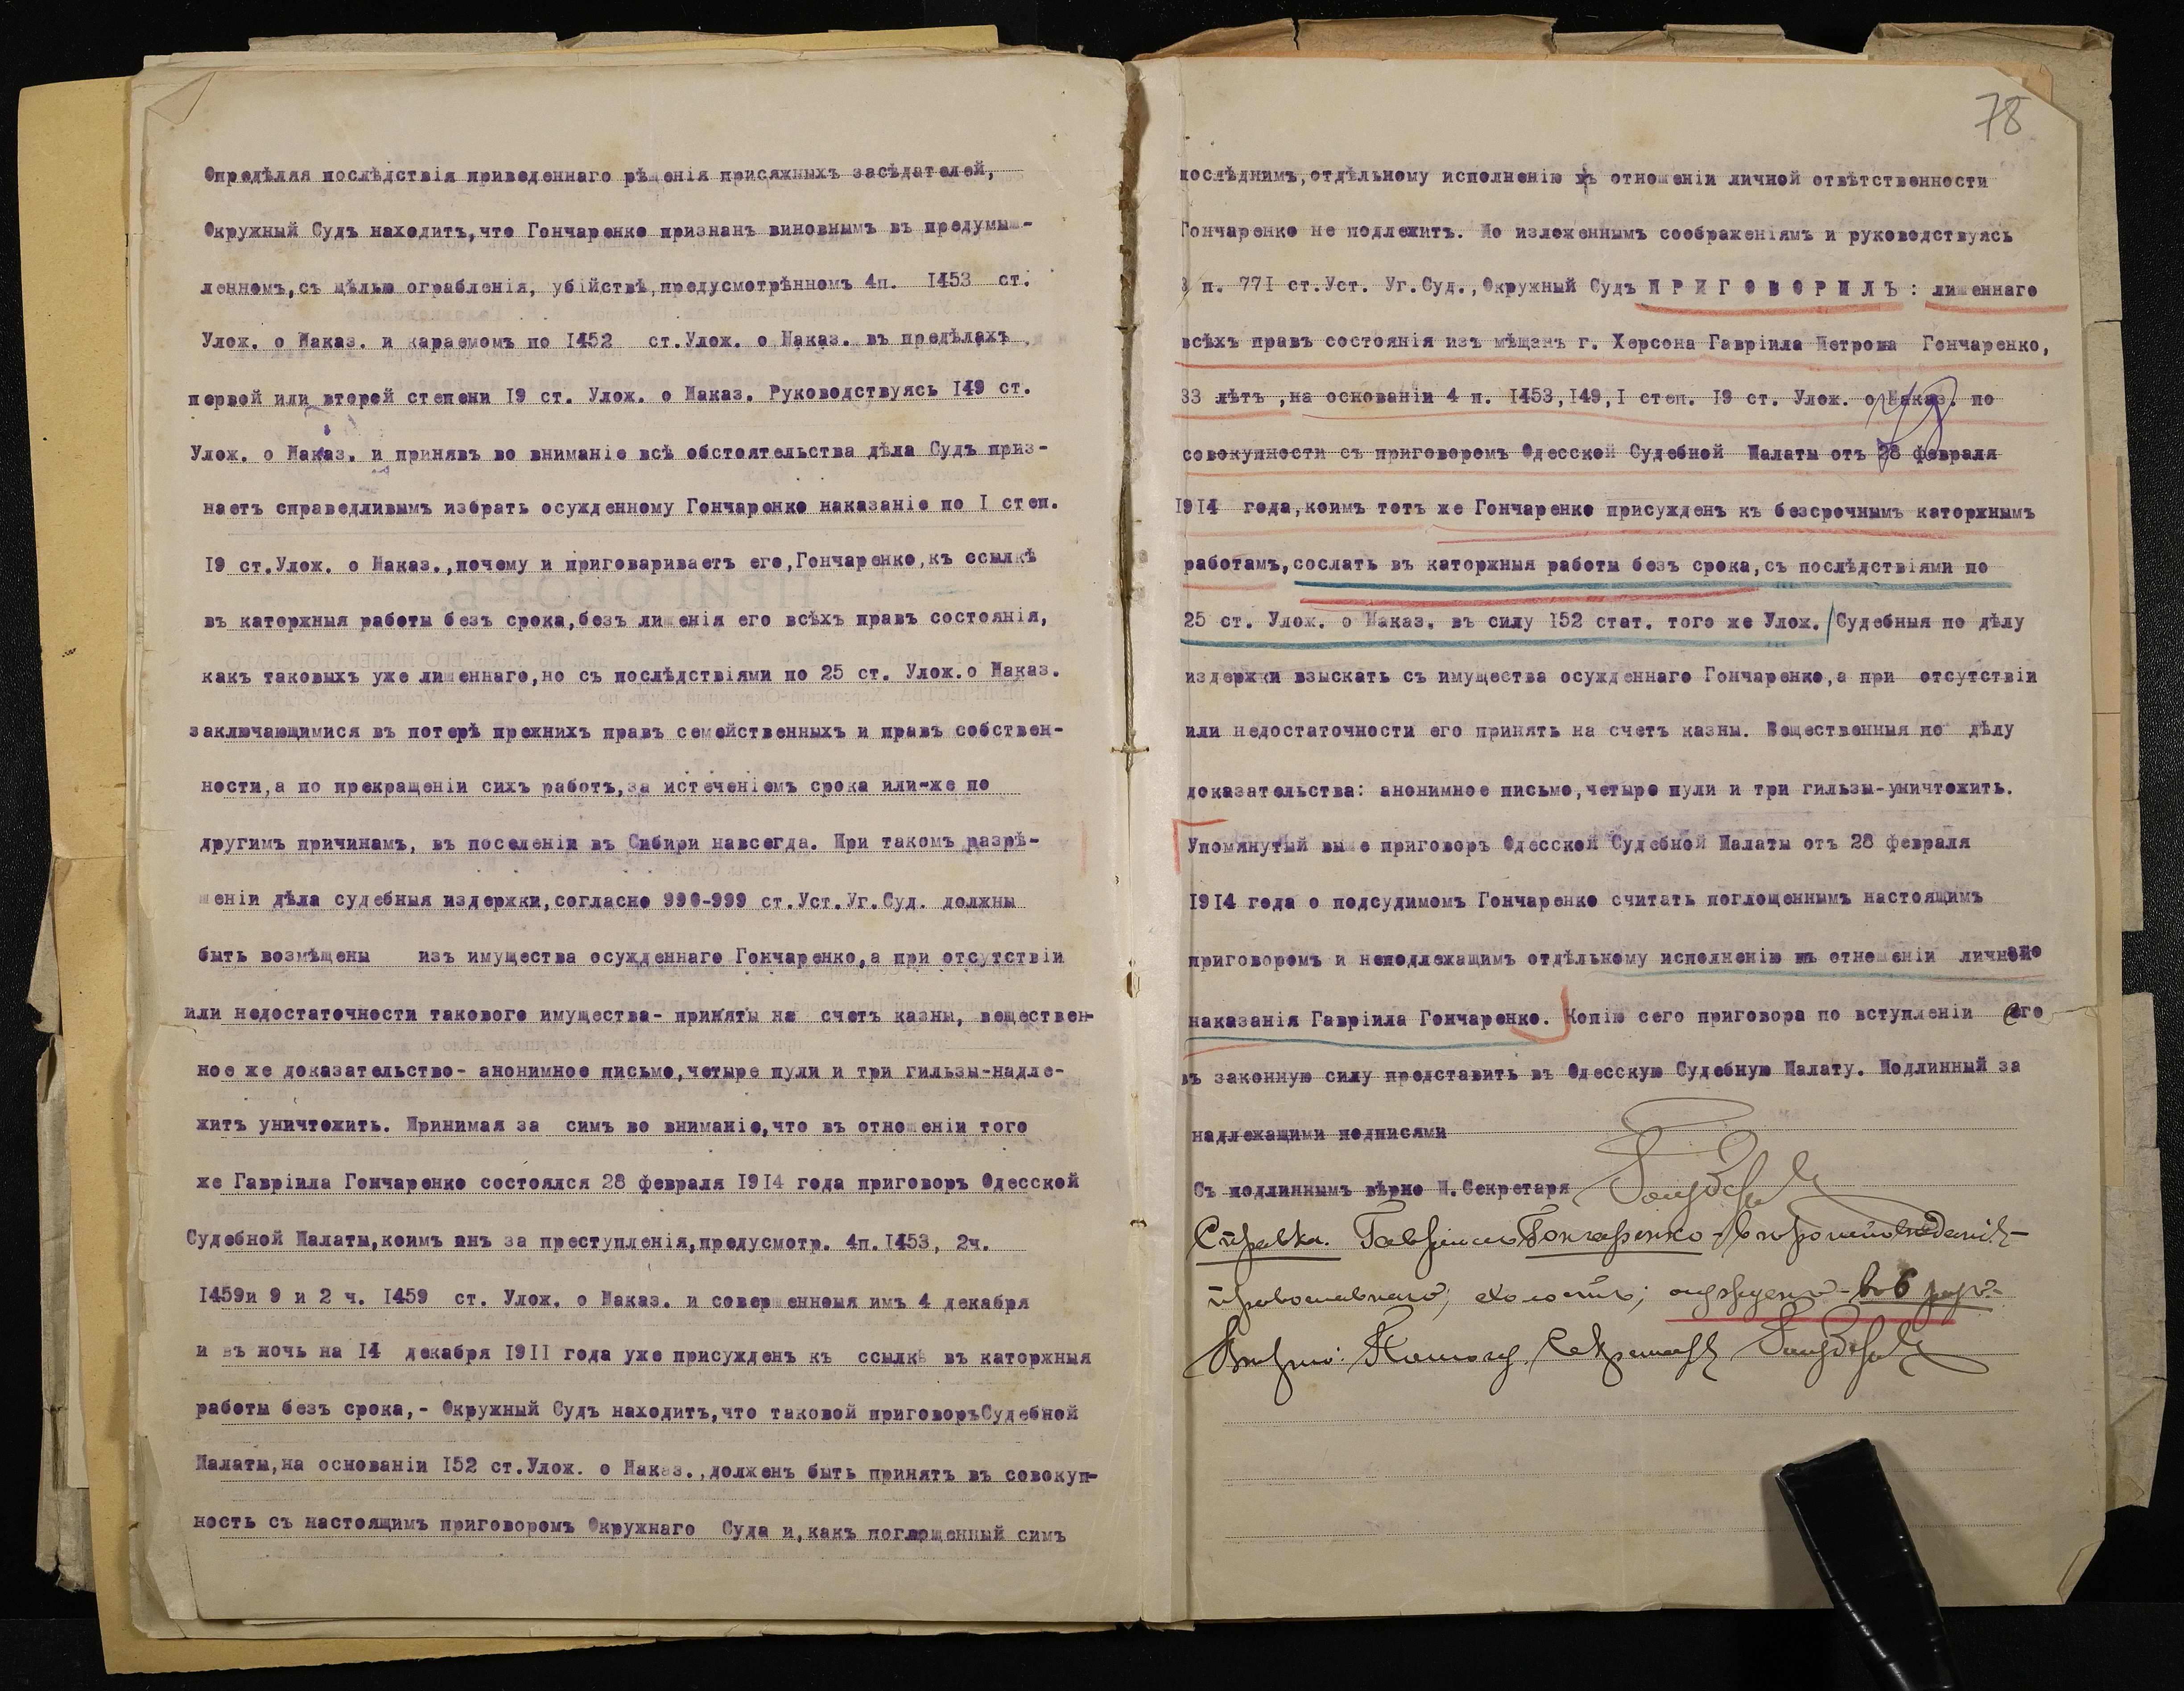 Опредѣляя послѣдствія приведеннаго рѣшенія присяжныхъ засѣдателей,
Окружный Судъ находитъ,что Гончаренко признанъ виновнымъ въ предумыш-
ленномъ,съ цѣлью ограбленія, убійствѣ,предусмотрѣнномъ 4п. 1453 ст.
Улож. о Наказ. и караемомъ по 1452 ст.Улож. о Наказ. въ предѣлахъ
первой или второй степени 19 ст. Улож. о Наказ. Руководствуясь 149 ст.
Улож. о Наказ. и принявъ во вниманіе всѣ обстоятельства дѣла Судъ приз-
наетъ справедливымъ избрать осужденному Гончаренко наказаніе по I степ.
19 ст.Улож. о Наказ.,почему и приговариваетъ его,Гончаренко,къ ссылкѣ
въ каторжныя работы безъ срока,безъ лишенія его всѣхъ правъ состоянія,
какъ таковыхъ уже лишеннаго,но съ послѣдствіями по 25 ст. Улож.о Наказ.
заключающимися въ потерѣ прежнихъ правъ семейственныхъ и правъ собствен-
ности,а по прекращеніи сихъ работъ,за истеченіемъ срока или-же по
другимъ причинамъ, въ поселеніи въ Сибири навсегда. При такомъ разрѣ-
шеніи дѣла судебныя издержки,согласно 990-999 ст.Уст.Уг.Суд. должны
быть возмѣщены изъ имущества осужденнаго Гончаренко,а при отсутствіи
или недостаточности такового имущества- приняты на счетъ казны, веществен-
ное же доказательство- анонимное письмо,четыре пули и три гильзы-надле-
житъ уничтожить. Принимая за симъ во вниманіе,что въ отношеніи того
же Гавріила Гончаренко состоялся 28 февраля 1914 года приговоръ Одесской
Судебной Палаты,коимъ онъ за преступленія,предусмотр. 4п.1453, 2ч.
1459и 9 и 2 ч. 1459 ст. Улож. о Наказ. и совершенныя имъ 4 декабря
и въ ночь на 14 декабря 1911 года уже присужденъ къ ссылкѣ въ каторжныя
работы безъ срока,- Окружный Судъ находитъ,что таковой приговоръСудебной
Палаты,на основаніи 152 ст.Улож. о Наказ.,долженъ быть принятъ въ совокуп-
ность съ настоящимъ приговоромъ Окружнаго Суда и,какъ поглощенный симъ
78
послѣднимъ,отдѣльному исполненію въ отношеніи личной отвѣтственности
Гончаренко не подлежитъ. По изложеннымъ соображеніямъ и руководствуясь
3 п. 771 ст.Уст. Уг.Суд.,Окружный Судъ П Р И Г О В О Р И Л Ъ : лишеннаго
всѣхъ правъ состоянія изъ мѣщанъ г. Херсона Гавріила Петрова Гончаренко,
33 лѣтъ ,на основаніи 4 п. 1453,149,I степ. 19 ст. Улож. о Наказ. по
совокупности съ приговоромъ Одесской Судебной Палаты отъ 28 февраля
1914 года,коимъ тотъ же Гончаренко присужденъ къ безсрочнымъ каторжнымъ
работамъ,сослать въ каторжныя работы безъ срока,съ послѣдствіями по
25 ст. Улож. о Наказ. въ силу 152 стат. того же Улож. Судебныя по дѣлу
издержки взыскать съ имущества осужденнаго Гончаренко,а при отсутствіи
или недостаточности его принять на счетъ казны. Вещественныя по дѣлу
доказательства: анонимное письмо,четыре пули и три гильзы-уничтожить.
Упомянутый выше приговоръ Одесской Судебной Палаты отъ 28 февраля
1914 года о подсудимомъ Гончаренко считать поглощеннымъ настоящимъ
приговоромъ и неподлежащимъ отдѣльному исполненію въ отношеніи личнаго
наказанія Гавріила Гончаренко. Копію сего приговора по вступленіи его
въ законную силу представить въ Одесскую Судебную Палату. Подлинный за
надлежащими подписями
Съ подлиннымъ вѣрно П.Секретаря
Справка. Гавріилъ Гончаренко - вѣроисповѣданія -
православнаго; холостъ; осужденъ - въ 6 разъ.
Вѣрно: Помощ. Секретаря